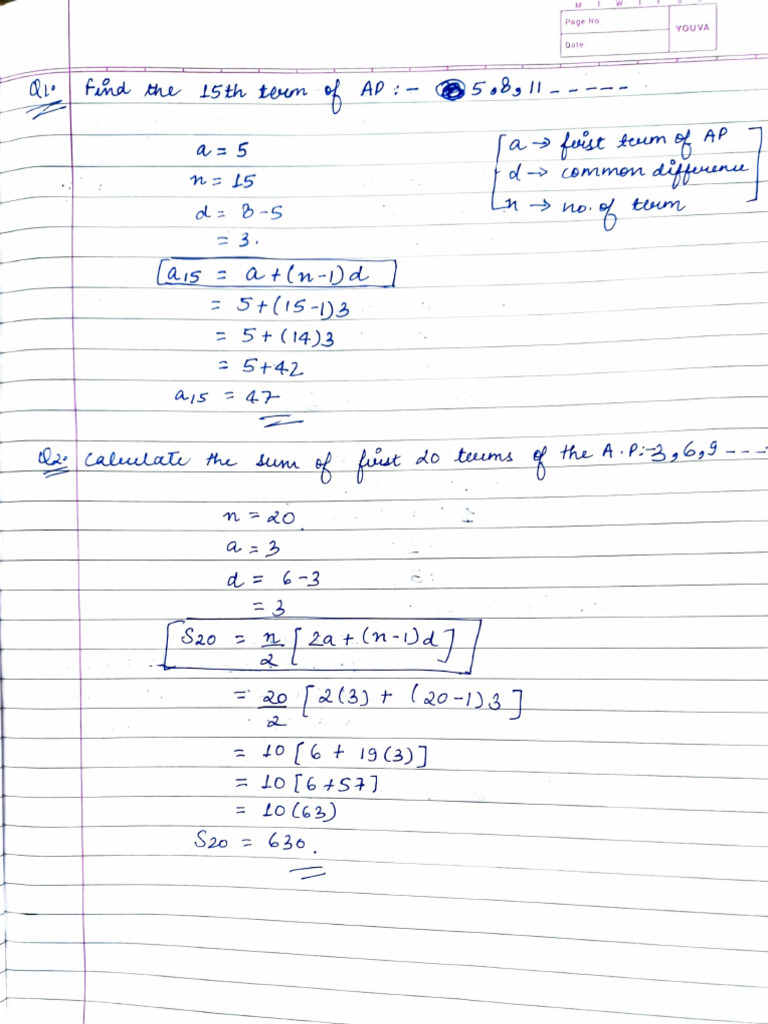 M I W I T S
Page No.
YOUVA
Date
Q1. Find the 15th term of AP :- 5, 8, 11 -----
a = 5
n = 15
d = 8-5
= 3.
[a → first term of AP
d → common difference
n → no. of term]
[a15 = a + (n-1) d]
= 5 + (15-1)3
= 5 + (14)3
= 5+42
a15 = 47
Q2. Calculate the sum of first 20 terms of the A.P:- 3, 6, 9 ---
n = 20
a = 3
d = 6-3
= 3
[S20 = n/2 [2a + (n-1)d]]
= 20/2 [2(3) + (20-1)3]
= 10 [6 + 19(3)]
= 10 [6+57]
= 10 (63)
S20 = 630.